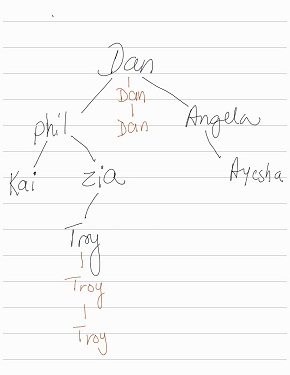 Dan
Dan
Dan
phil
Angela
Kai
Zia
Ayesha
Troy
Troy
Troy